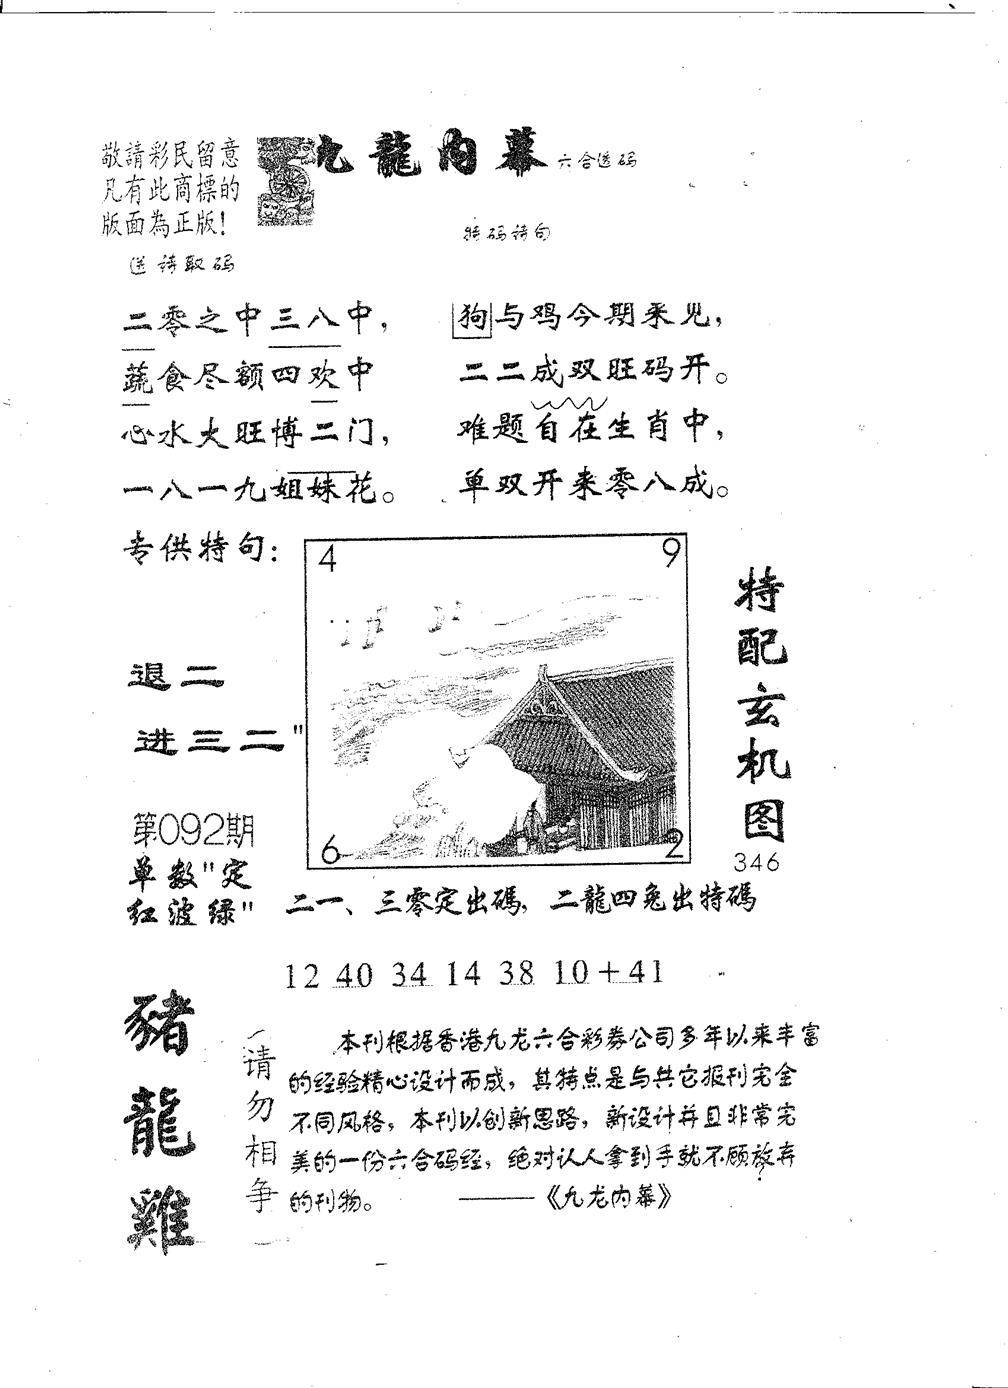 敬請彩民留意
凡有此商標的
版面為正版!
九龍內幕
六合送码
特码诗句
送诗取码
二零之中三八中,
蔬食尽额四欢中
心水大旺博二门,
一八一九姐妹花。
狗与鸡今期来见,
二二成双旺码开。
难题自在生肖中,
单双开来零八成。
专供特句:
退二
进三二"
4 9
6 2
特配玄机图
346
第092期
单数"定
红波绿"
二一、三零定出碼,二龍四兔出特碼
12 40 34 14 38 10+41
豬龍雞
请勿相争
本刊根据香港九龙六合彩券公司多年以来丰富
的经验精心设计而成,其特点是与其它报刊完全
不同风格,本刊以创新思路,新设计并且非常完
美的一份六合码经,绝对认人拿到手就不顾放弃
的刊物。 ———《九龙内幕》